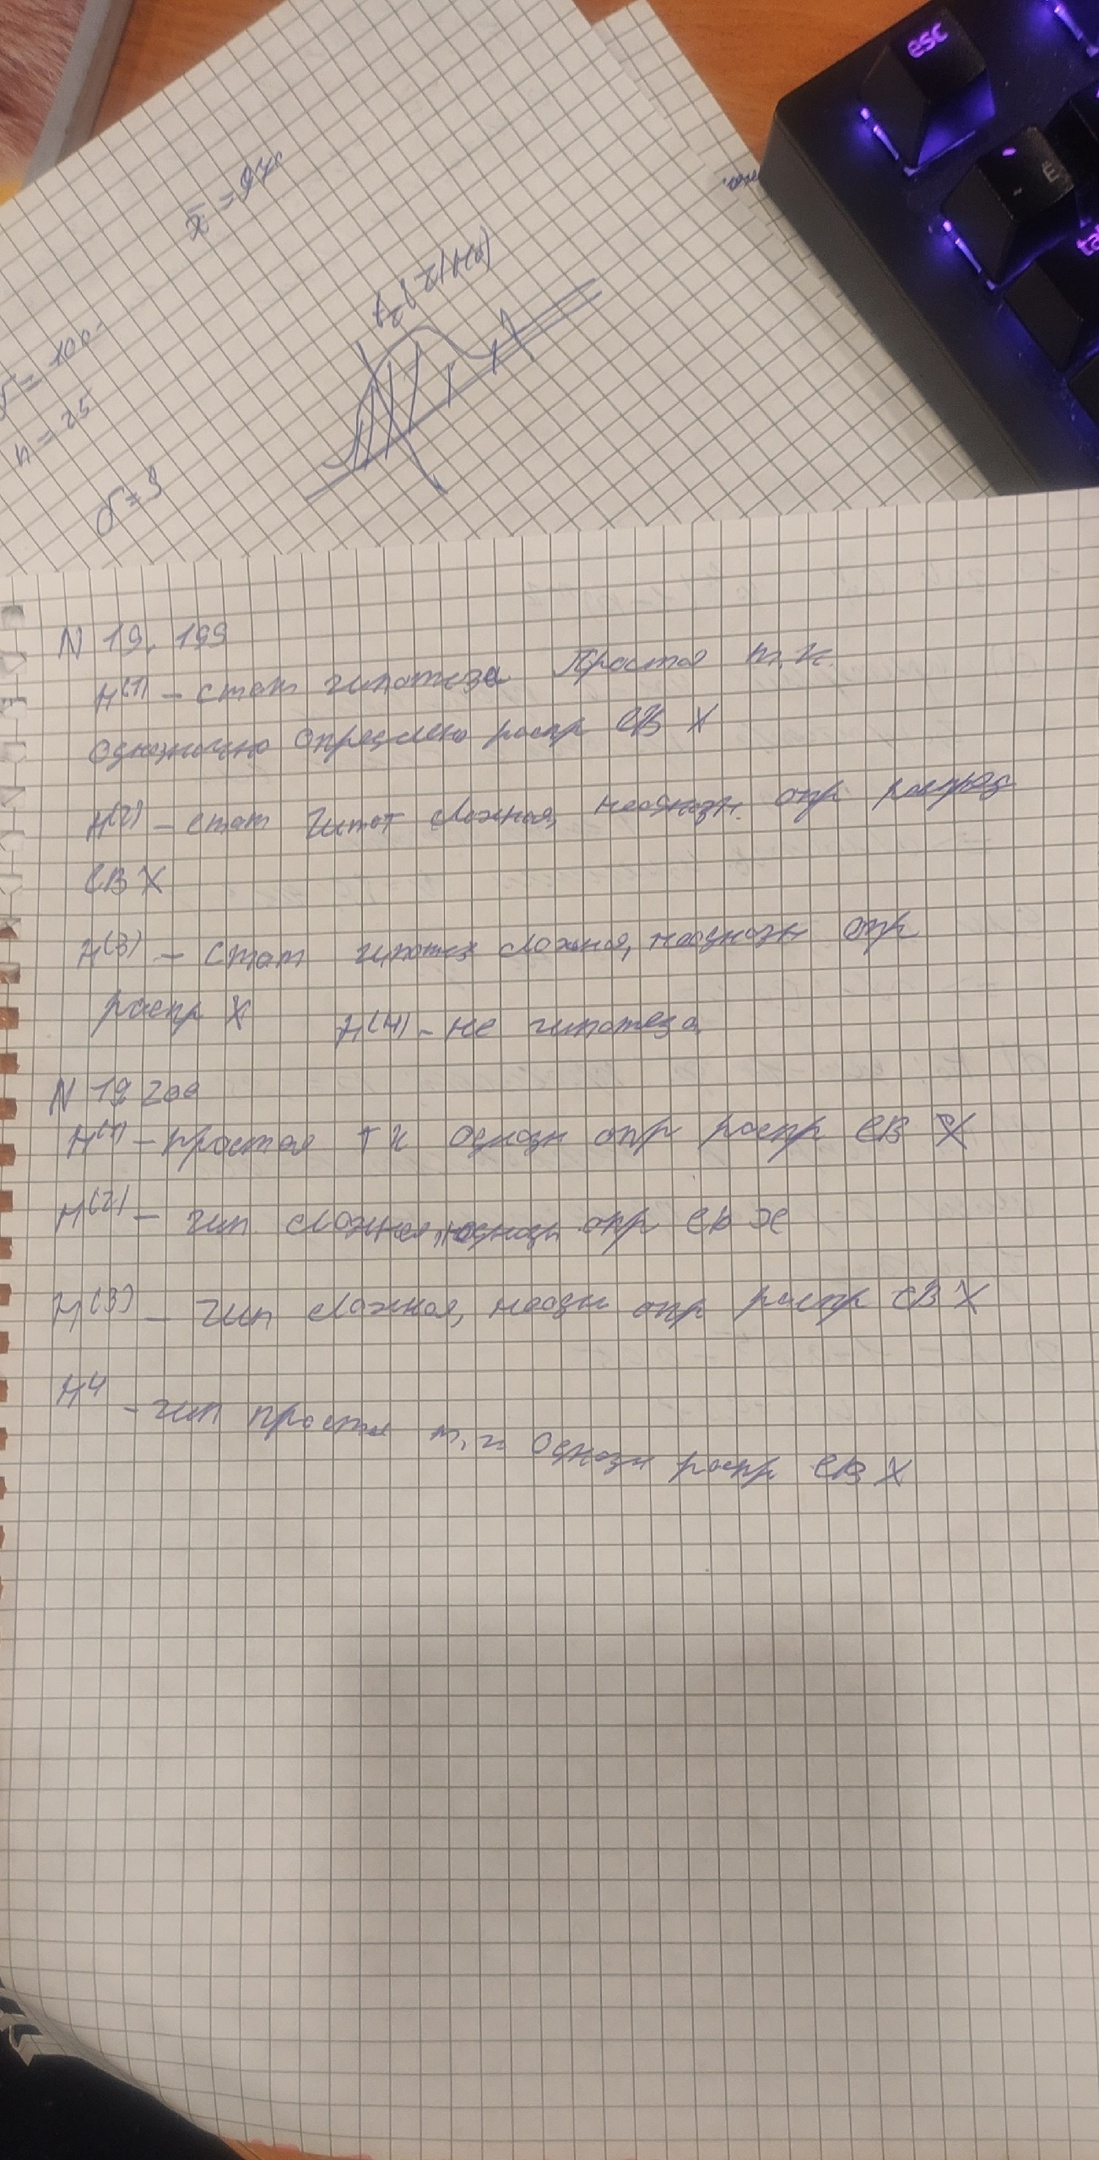 x̄ = 97
= 100
n = 25
σ = 9
esc
Ё
N 19. 199
H(1) – стат гипотеза Простая т.к.
Однозначно определено распр СВ X
H(2) – стат гипот сложная, неоднозн. опр распред
СВ X
H(3) – стат гипотез сложная, неоднозн опр
распр X
H(4) – не гипотеза
N 19 200
H(1) – простая т к однозн опр распр СВ X
H(2) – гип сложная, опр СВ X
H(3) – гип сложная, неодн опр распр СВ X
H4 – гип простая т.к однозн распр СВ X